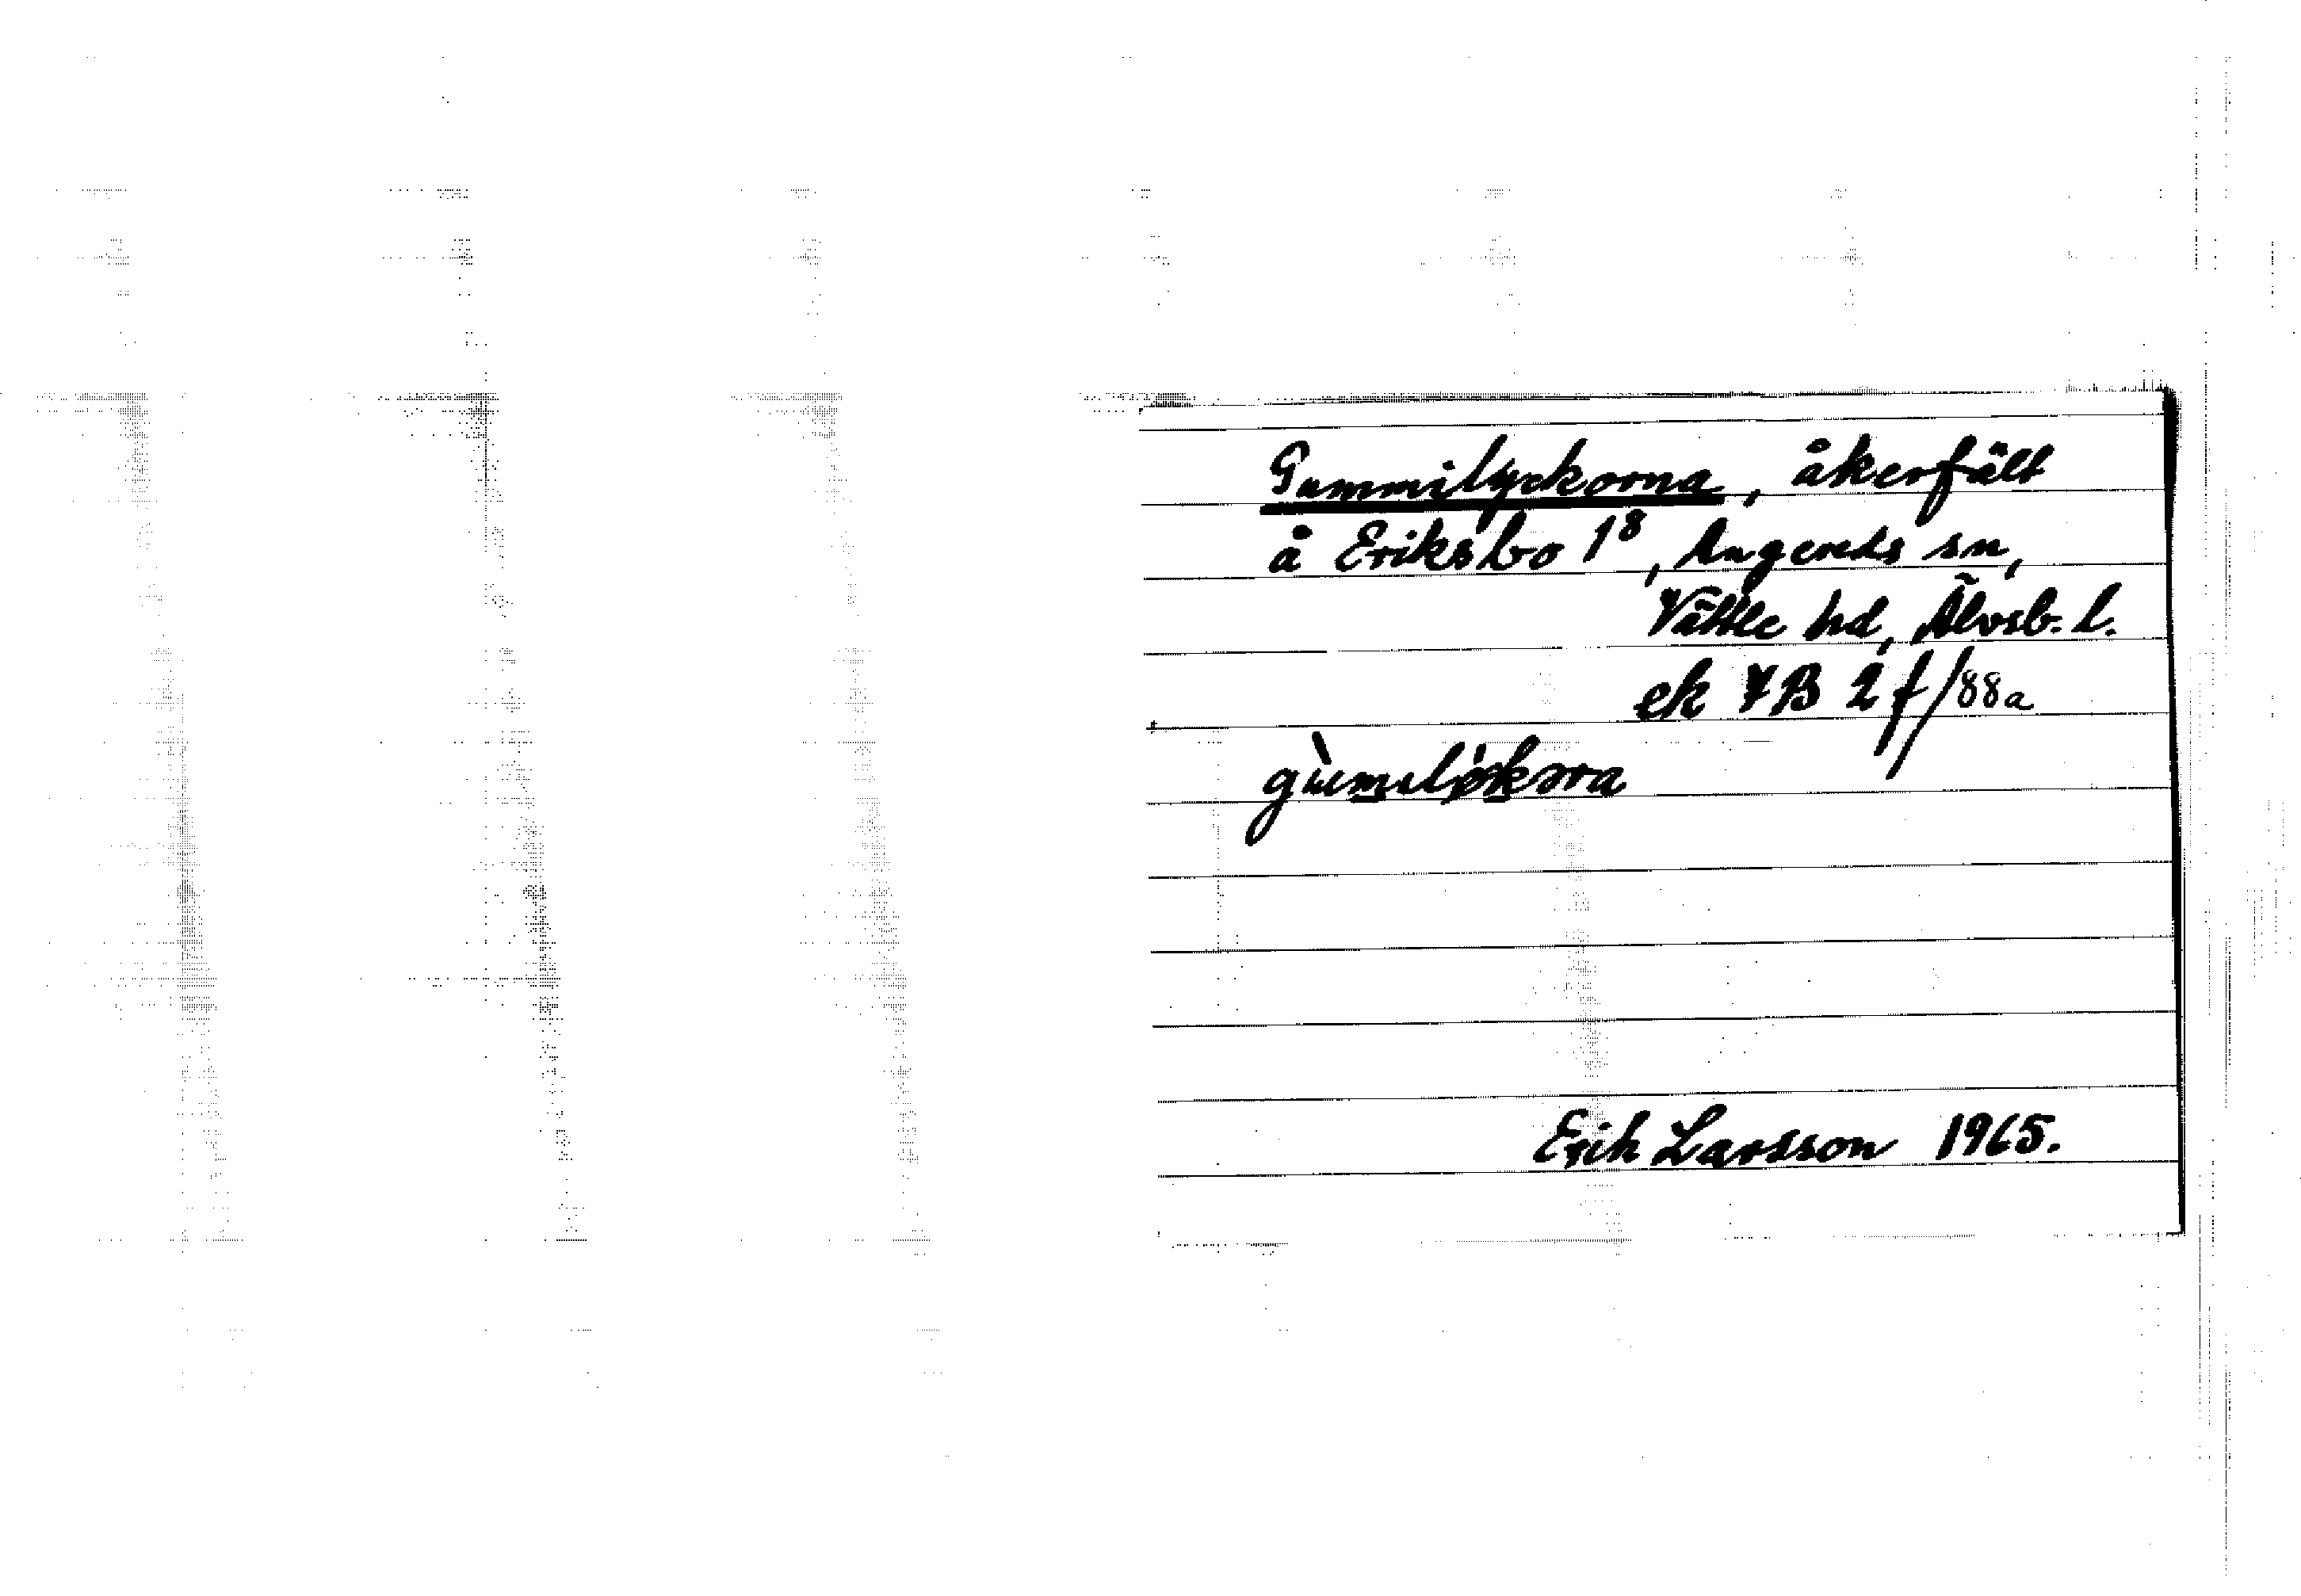 Gummilyckorna, åkerfält
å Eriksbo 1⁸, Angereds sn,
Vättle hd, Älvsb. l.
ek 7B 2f/88a
Erik Larsson 1965.